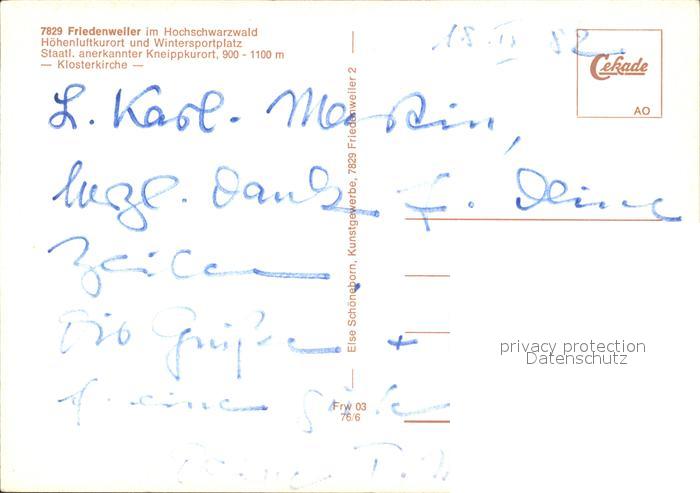 7829 Friedenweiler im Hochschwarzwald
Höhenluftkurort und Wintersportplatz
Staatl. anerkannter Kneippkurort, 900 - 1100 m
— Klosterkirche —
18. II 82
Cekade
AO
L. Karl-Martin,
herzl. Dank f. Deine
Zeilen.
Grüße +
f. eine gute
Else Schöneborn, Kunstgewerbe, 7829 Friedenweiler 2
Frw 03
76/6
privacy protection
Datenschutz